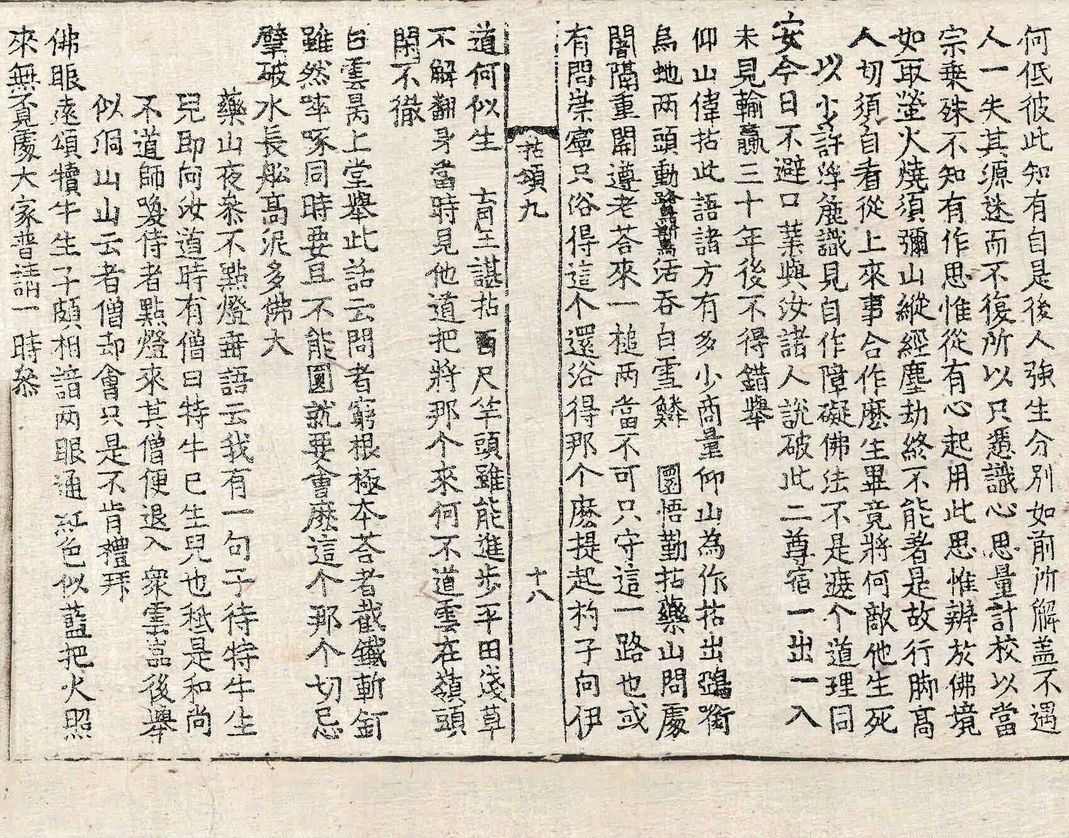 何低彼此知有自是後人強生分別如前所解盖不遇
人一失其源迷而不復所以只憑識心思量計校以當
宗乗殊不知有作思惟從有心起用此思惟辨於佛境
如取螢火燒須彌山縱經塵劫終不能著是故行脚高
人切須自看從上來事合作麽生畢竟將何敵他生死
以少許浮麁識見自作障礙佛法不是遮个道理同
安今日不避口業與汝諸人說破此二尊宿一出一入
未見輸贏三十年後不得錯舉
仰山偉拈此語諸方有多少商量仰山為你拈出鵶銜
烏虵两頭動鷺鷥活吞白雪鱗　圜悟勤拈藥山問處
闇隔重開遵老荅來一槌两當不可只守這一路也或
有問崇寧只俗得這个還浴得那个麽提起杓子向伊
道何似生　育王諶拈百尺竿頭雖能進步平田淺草
不解翻身當時見他道把將那个來何不道雲在嶺頭
閑不徹
拈頌九
十八
白雲昺上堂舉此話云問者窮根極本荅者截鐵斬釘
雖然啐啄同時要且不能圓就要會麽這个那个切忌
擘破水長舩高泥多佛大
藥山夜叅不點燈垂語云我有一句子待特牛生
兒即向汝道時有僧曰特牛已生兒也秖是和尚
不道師喚侍者點燈來其僧便退入衆雲嵓後舉
似洞山山云者僧却會只是不肯禮拜
佛眼遠頌犢牛生子頗相諳两眼通紅色似藍把火照
來無覔處大家普請一時叅